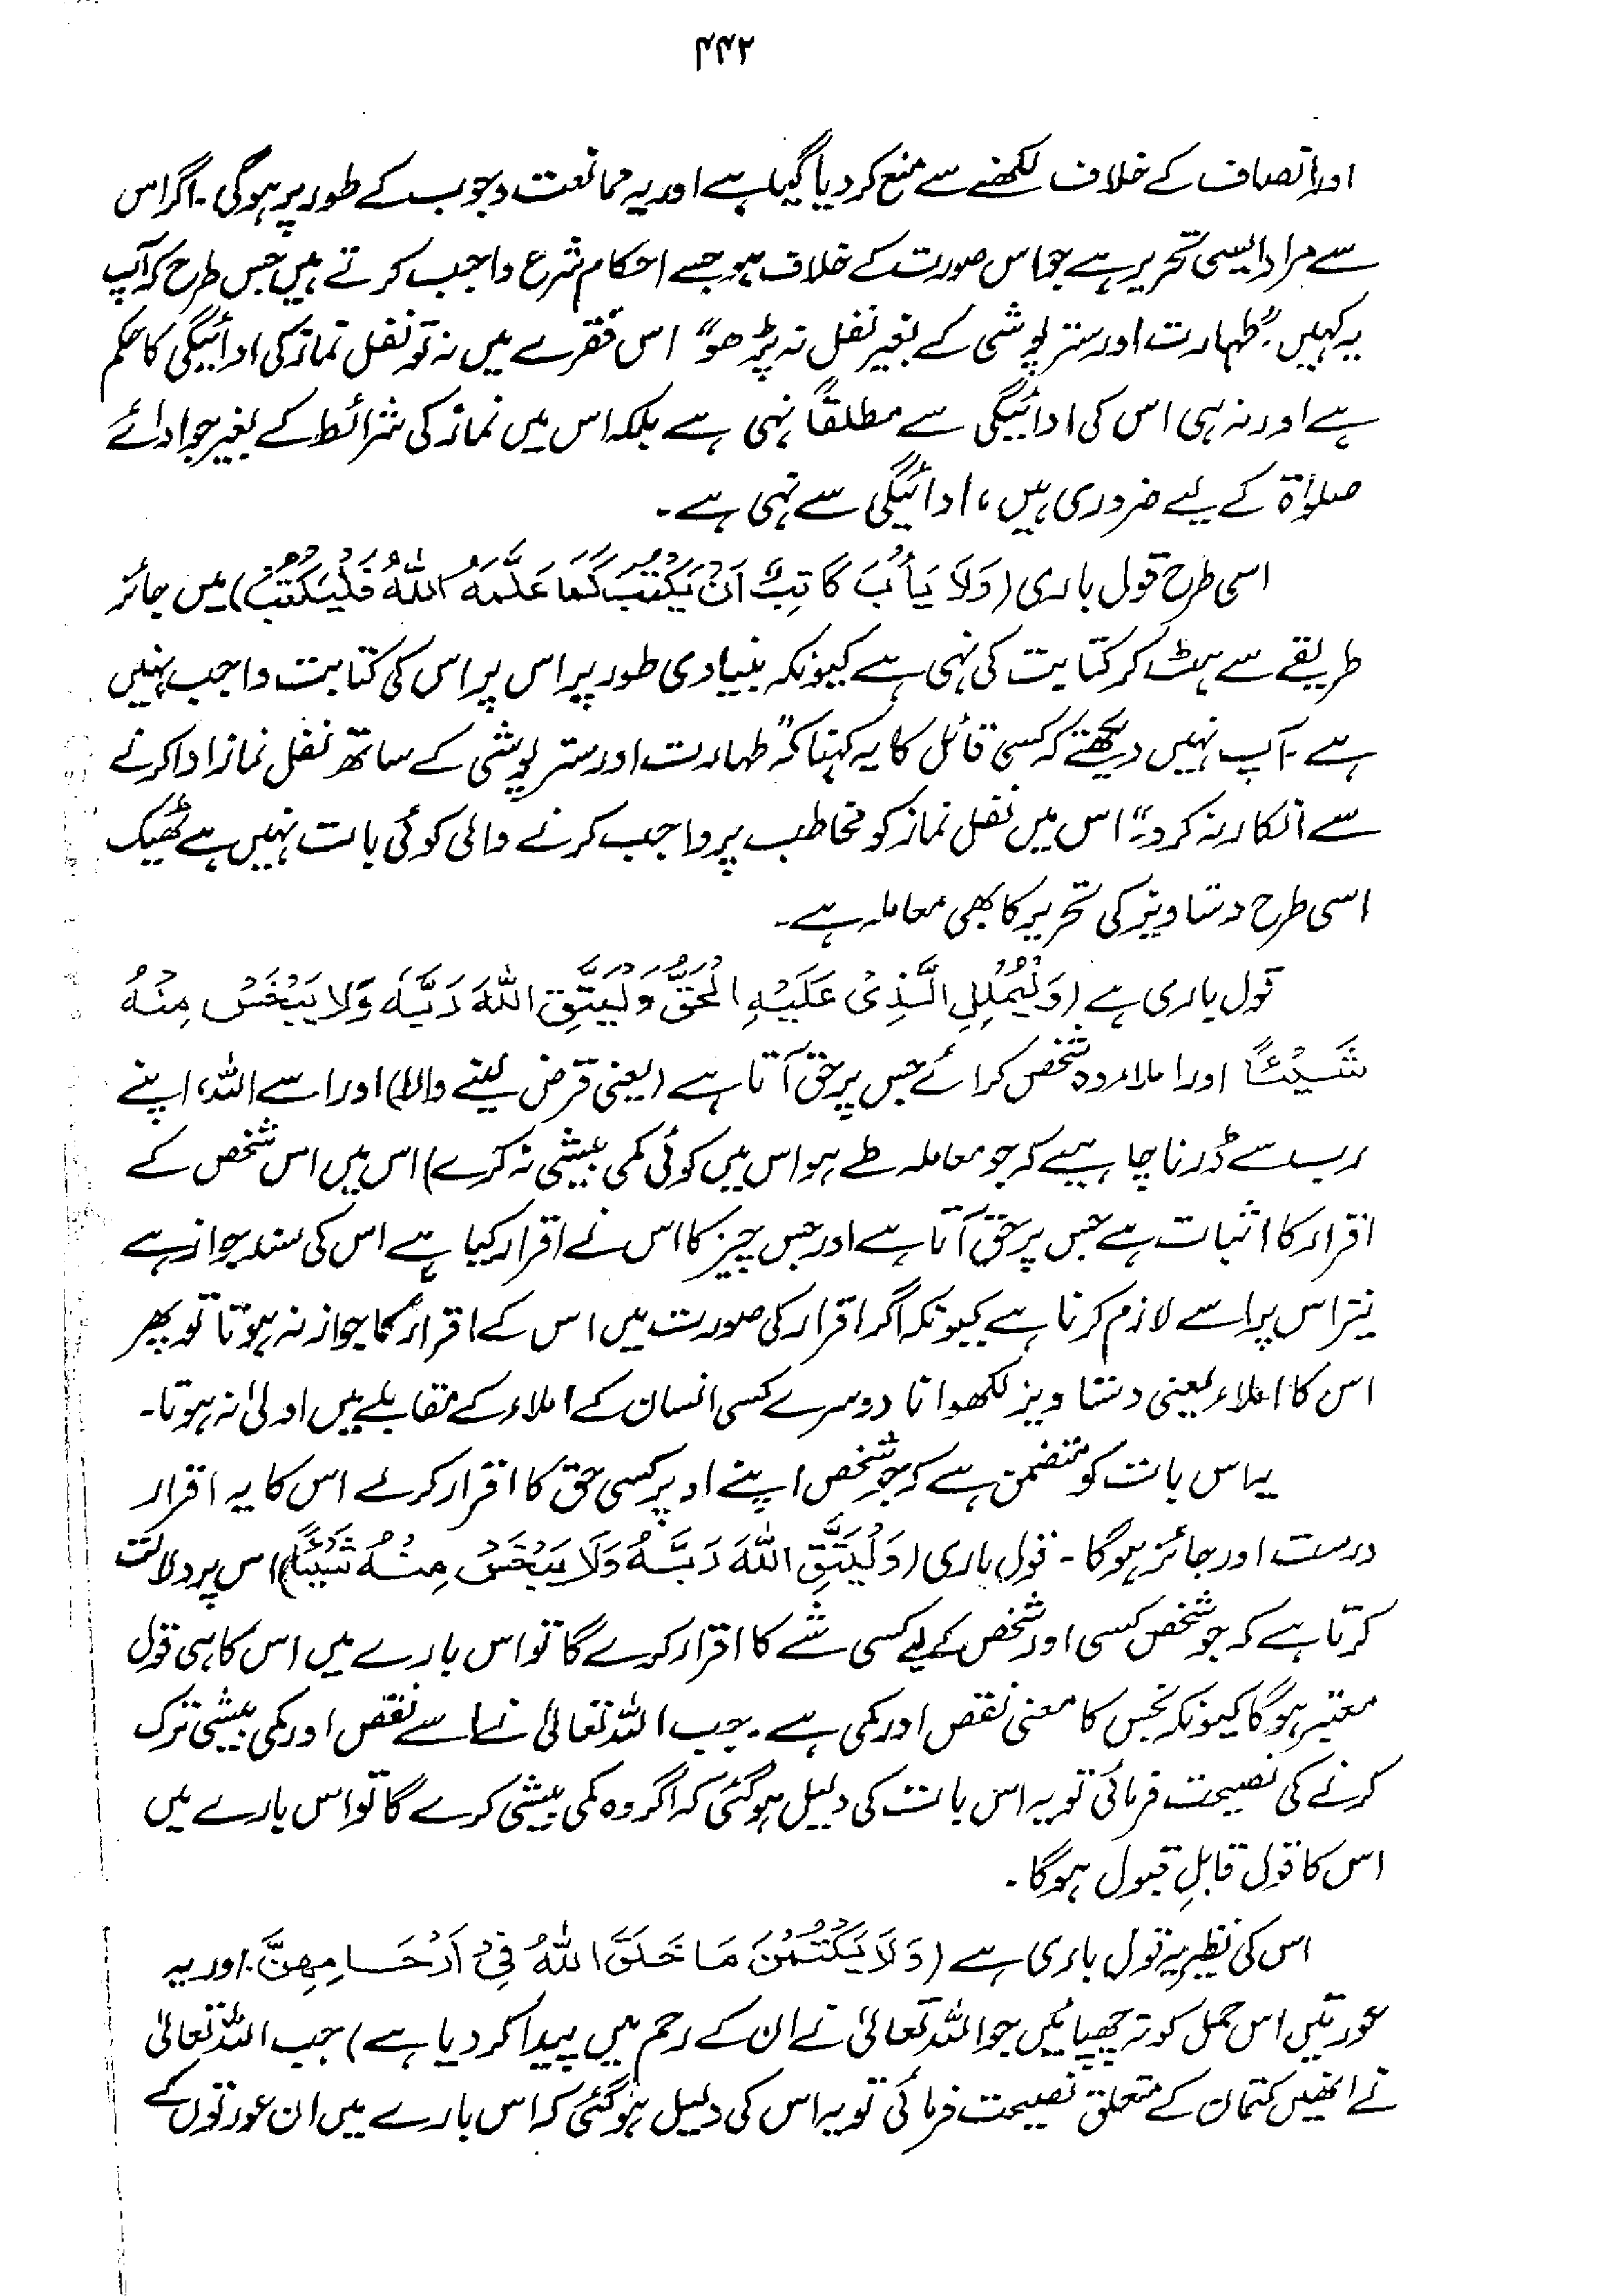 ۴۴۲
اور انصاف کے خلاف لکھنے سے منع کر دیا گیا ہے اور یہ ممانعت وجوب کے طور پر ہوگی۔ اگر اس
سے مراد ایسی تحریر ہے جو اس صورت کے خلاف ہو جسے احکام شرع واجب کرتے ہیں جس طرح کہ آپ
یہ کہیں "طہارت اور ستر پوشی کے بغیر نفل نہ پڑھو" اس فقرے میں نہ تو نفل نماز کی ادائیگی کا حکم
ہے اور نہ ہی اس کی ادائیگی سے مطلقاً نہی ہے بلکہ اس میں نماز کی شرائط کے بغیر جو ادائے
صلوٰۃ کے لیے ضروری ہیں، ادائیگی سے نہی ہے۔
اسی طرح قول باری (وَلَا یَأْبَ کَاتِبٌ اَنْ یَکْتُبَ کَمَا عَلَّمَہُ اللّٰہُ فَلْیَکْتُبْ) میں جائز
طریقے سے ہٹ کر کتابت کی نہی ہے کیونکہ بنیادی طور پر اس پر اس کی کتابت واجب نہیں
ہے۔ آپ نہیں دیکھتے کہ کسی قائل کا یہ کہنا کہ "طہارت اور ستر پوشی کے ساتھ نفل نماز ادا کرنے
سے انکار نہ کرو" اس میں نفل نماز کو مخاطب پر واجب کرنے والی کوئی بات نہیں ہے ٹھیک
اسی طرح دستاویز کی تحریر کا بھی معاملہ ہے۔
قول باری ہے (وَلْیُمْلِلِ الَّذِیْ عَلَیْہِ الْحَقُّ وَلْیَتَّقِ اللّٰہَ رَبَّہٗ وَلَا یَبْخَسْ مِنْہُ
شَیْئًا اور املاء وہ شخص کرائے جس پر حق آتا ہے (یعنی قرض لینے والا) اور اسے اللہ، اپنے
رب سے ڈرنا چاہیے کہ جو معاملہ طے ہو اس میں کوئی کمی بیشی نہ کرے) اس میں اس شخص کے
اقرار کا اثبات ہے جس پر حق آتا ہے اور جس چیز کا اس نے اقرار کیا ہے اس کی سند جواز ہے
نیز اس پر اسے لازم کرنا ہے کیونکہ اگر اقرار کی صورت میں اس کے اقرار کا جواز نہ ہوتا تو پھر
اس کا املاء یعنی دستاویز لکھوانا دوسرے کسی انسان کے املاء کے مقابلے میں اولیٰ نہ ہوتا۔
یہ اس بات کو متضمن ہے کہ جو شخص اپنے اوپر کسی حق کا اقرار کرے اس کا یہ اقرار
درست اور جائز ہوگا۔ قول باری (وَلْیَتَّقِ اللّٰہَ رَبَّہٗ وَلَا یَبْخَسْ مِنْہُ شَیْئًا) اس پر دلالت
کرتا ہے کہ جو شخص کسی اور شخص کے لیے کسی شے کا اقرار کرے گا تو اس بارے میں اس کا ہی قول
معتبر ہوگا کیونکہ بخس کا معنی نقص اور کمی ہے۔ جب اللہ تعالیٰ نے اسے نقص اور کمی بیشی ترک
کرنے کی نصیحت فرمائی تو یہ اس بات کی دلیل ہوگئی کہ اگر وہ کمی بیشی کرے گا تو اس بارے میں
اس کا قول قابلِ قبول ہوگا۔
اس کی نظیر یہ قول باری ہے (وَلَا یَکْتُمْنَ مَا خَلَقَ اللّٰہُ فِیْ اَرْحَامِہِنَّ۔ اور یہ
عورتیں اس حمل کو نہ چھپائیں جو اللہ تعالیٰ نے ان کے رحم میں پیدا کر دیا ہے) جب اللہ تعالیٰ
نے انھیں کتمان کے متعلق نصیحت فرمائی تو یہ اس کی دلیل ہوگئی کہ اس بارے میں ان عورتوں کے